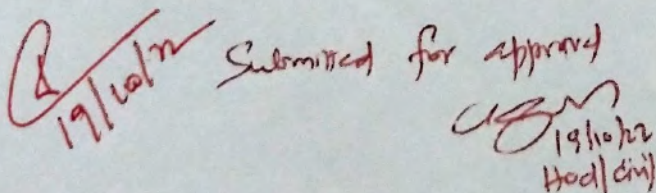 19/10/22 Submitted for approval
19/10/22
HoD/Civil